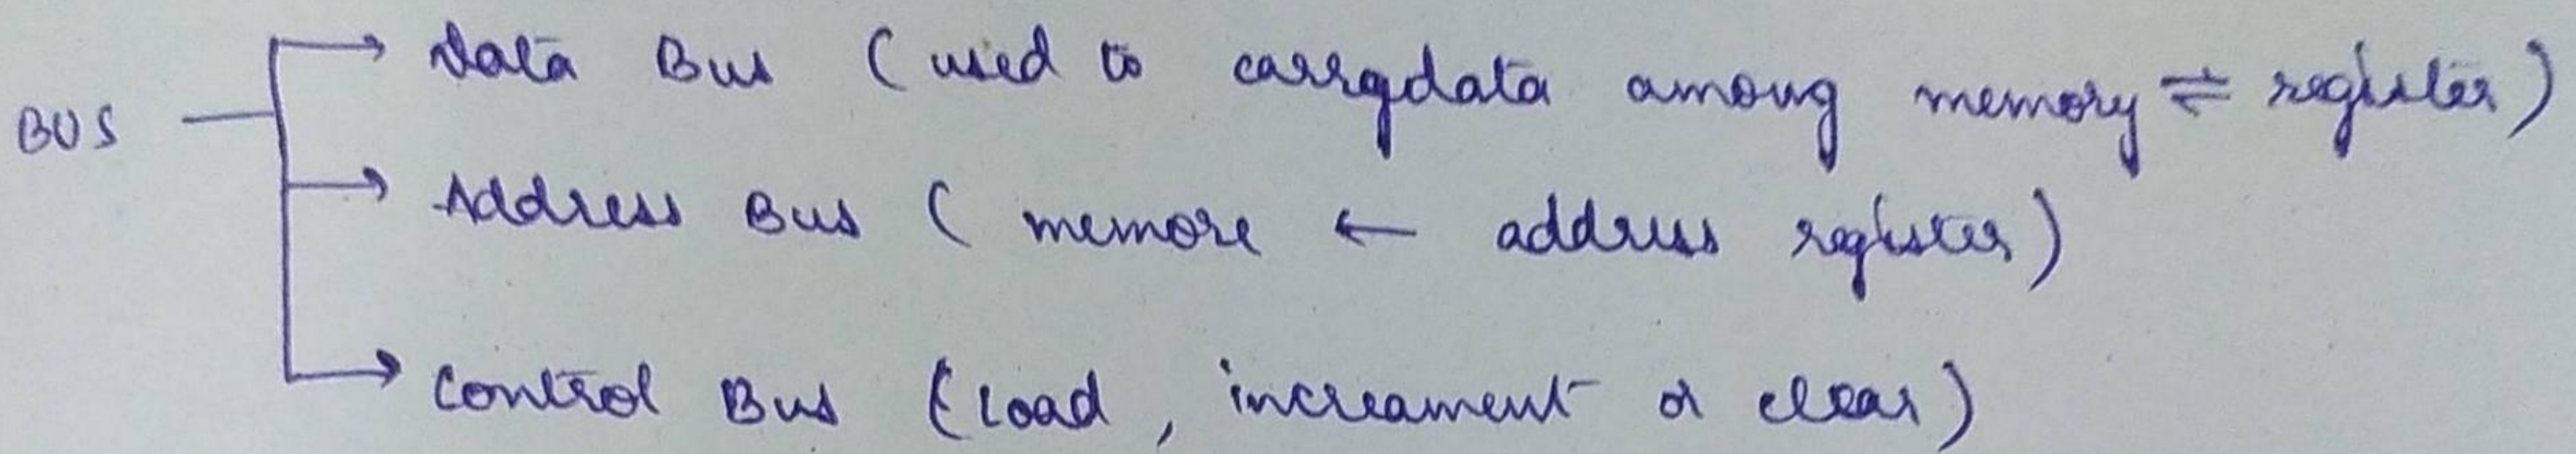 Data Bus (used to carrydata among memory ⇌ register)
BUS
Address Bus ( memore ← address register)
Control Bus (Load, increament or clear)